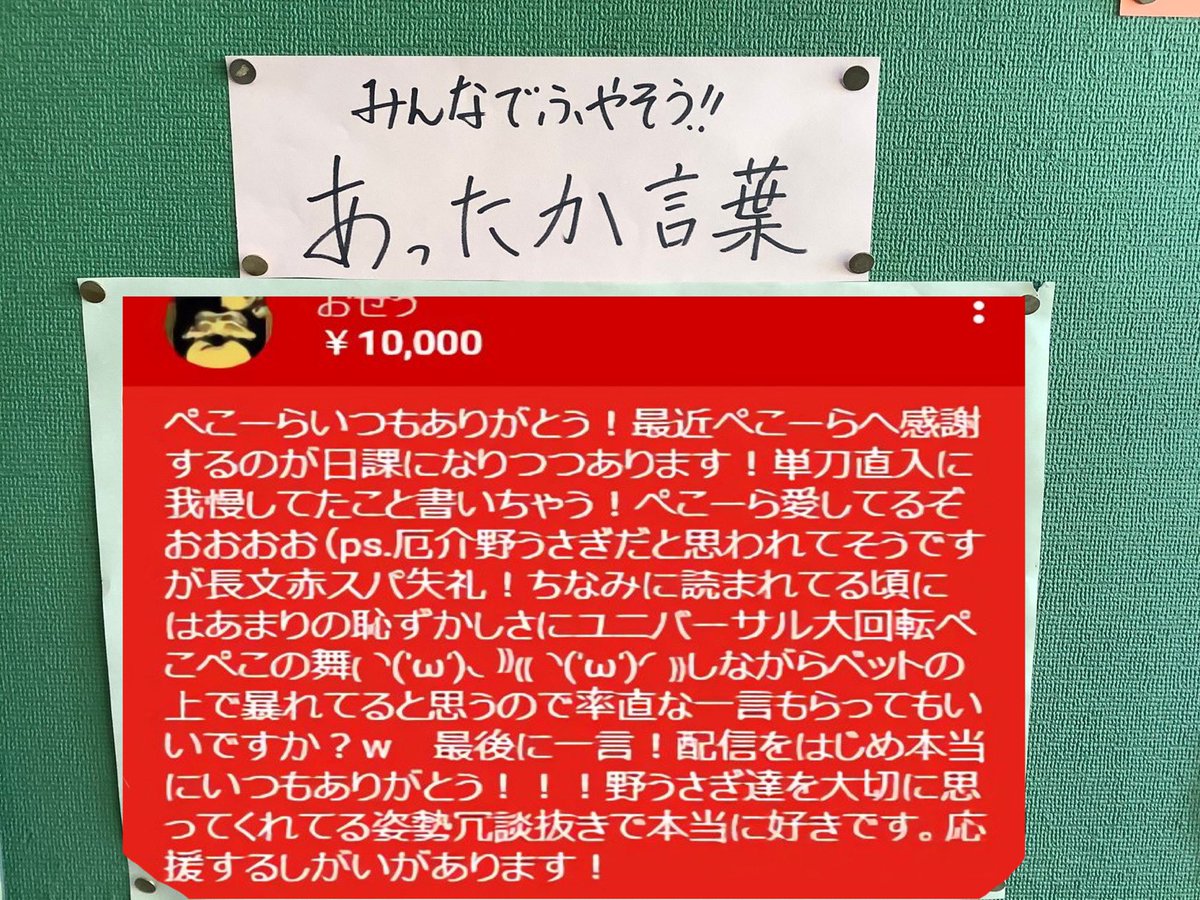 みんなでふやそう!!
あったか言葉
おせう
¥10,000
ぺこーらいつもありがとう！最近ぺこーらへ感謝
するのが日課になりつつあります！単刀直入に
我慢してたこと書いちゃう！ぺこーら愛してるぞ
おおおお(ps.厄介野うさぎだと思われてそうです
が長文赤スパ失礼！ちなみに読まれてる頃に
はあまりの恥ずかしさにユニバーサル大回転ぺ
こぺこの舞₍₍ ヽ('ω')、⁾⁾₍₍ ヽ('ω')ﾉ ₎₎しながらベットの
上で暴れてると思うので率直な一言もらってもい
いですか？w　最後に一言！配信をはじめ本当
にいつもありがとう！！！野うさぎ達を大切に思
ってくれてる姿勢冗談抜きで本当に好きです。応
援するしがいがあります！